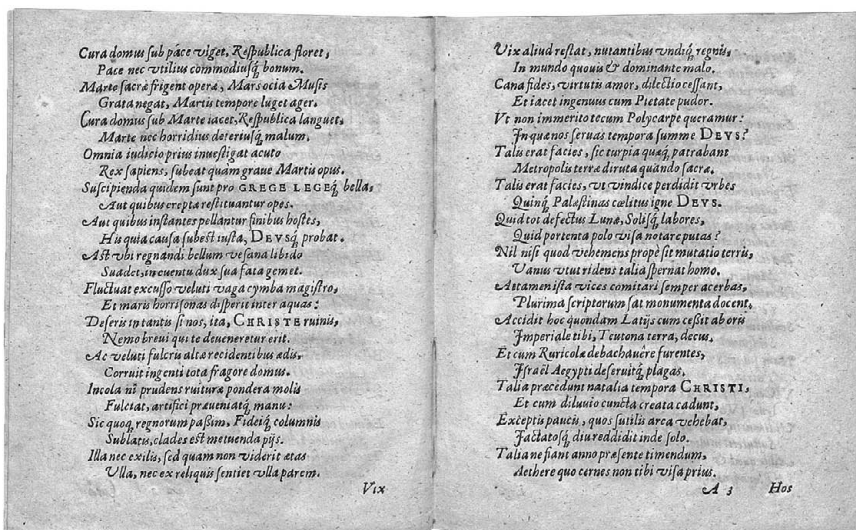 Cura domus sub pâce viget, Respublica floret,
Pace nec vtilius commodiusq́ bonum.
Marte sacræ frigent operæ, Mars ocia Musis
Grata negat, Martis tempore luget ager.
Cura domus sub Marte iacet, Respublica languet,
Marte nec horridius deteriusq́ malum.
Omnia iudicio prius inuestigat acuto
Rex sapiens, subeat quam graue Martis opus.
Suscipienda quidem sunt pro GREGE LEGEq́ bella,
Aut quibus erepta restituantur opes.
Aut quibus instantes pellantur finibus hostes,
His quia causa subest iusta, DEVSq́ probat.
Ast vbi regnandi bellum vesana libido
Suadet, in euentu dux sua fata gemet.
Fluctuat excusso veluti vaga cymba magistro,
Et maris horrisonas disperit inter aquas:
Deseris in tantis si nos, ita, CHRISTE ruinis,
Nemo breui qui te deueneretur erit.
Ac veluti fulcris altæ recidentibus ædis,
Corruit ingenti tota fragore domus.
Incola nî prudens ruituræ pondera molis
Fulciat, artifici præueniatq́ manu:
Sic quoq́ regnorum paßim, Fideiq́ columnis
Sublatis, clades est metuenda pijs.
Illa nec exilis, sed quam non viderit ætas
Vlla, nec ex reliquis sentiet vlla parem.
Vix
Vix aliud restat, nutantibus vndiq́ regnis,
In mundo quouis & dominante malo.
Cana fides, virtutis amor, dilectio cessant,
Et iacet ingenuus cum Pietate pudor.
Vt non immerito tecum Polycarpe queramur:
In quæ nos seruas tempora summe DEVS?
Talis erat facies, sic turpia quæq́ patrabant
Metropolis terræ diruta quando sacræ.
Talis erat facies, vt vindice perdidit vrbes
Quinq́ Palæstinas cœlitus igne DEVS.
Quid tot defectus Lunæ, Solisq́ labores,
Quid portenta polo visa notare putas?
Nil nisi quod vehemens propè sit mutatio terris,
Vanus vtut ridens talia spernat homo.
Attamen ista vices comitari semper acerbas,
Plurima scriptorum sat monumenta docent.
Accidit hoc quondam Latijs cum ceßit ab oris
Imperiale tibi, Teutona terra, decus.
Et cum Ruricolæ debachauêre furentes,
Israël Aegypti deseruitq́ plagas.
Talia præcedunt natalia tempora CHRISTI,
Et cum diluuio cuncta creata cadunt,
Exceptis paucis, quos sutilis arca vehebat,
Iactatosq́ diu reddidit inde solo.
Talia ne fiant anno præsente timendum,
Aethere quo cernes non tibi visa prius.
A 3 Hos